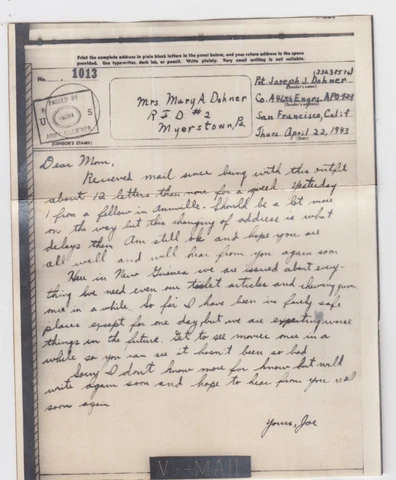 Print the complete address in plain block letters in the panel below, and your return address in the space
provided. Use typewriter, dark ink, or pencil. Write plainly. Very small writing is not suitable.
No. 1013
PASSED BY
U S
ARMY EXAMINER
(CENSOR'S STAMP)
Mrs. Mary A Dohner
R F D #2
Myerstown, Pa
Pvt Joseph J. Dohner
(Sender's name)
Co. A 46th Engrs. APO 929
(Sender's address)
San Francisco, Calif
Thurs. April 22, 1943
(Date)
Dear Mom,
Recieved mail since being with this outfit
about 12 letters then none for a speed. Yesterday
1 from a fellow in Annville. Should be a lot more
on the way but this changing of address is what
delays them. Am still ok and hope you are
all well and will hear from you again soon
Here in New Guinea we are issued about every-
thing we need even our toilet articles and chewing gum
once in a while. So far I have been in fairly safe
places except for one day, but we are expecting worse
things in the future. Get to see movies once in a
while so you can see it hasn't been so bad
Sorry I don't know more for know but will
write again soon and hope to hear from you real
soon again
Yours, Joe
V···—MAIL